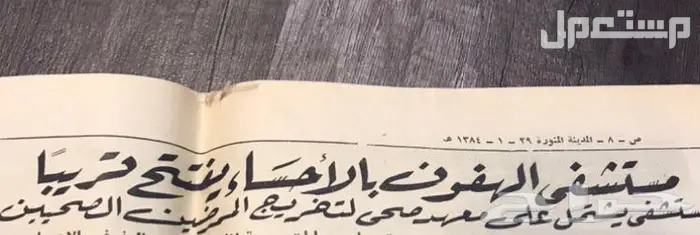 مستعمل
ص - ٨ - المدينة المنورة ٢٩ - ١ - ١٣٨٤ هـ
مستشفى الهفوف بالأحساء يفتتح قريبًا
مستشفى يشتمل على معهد صحى لتخريج الممرضين الصحيين